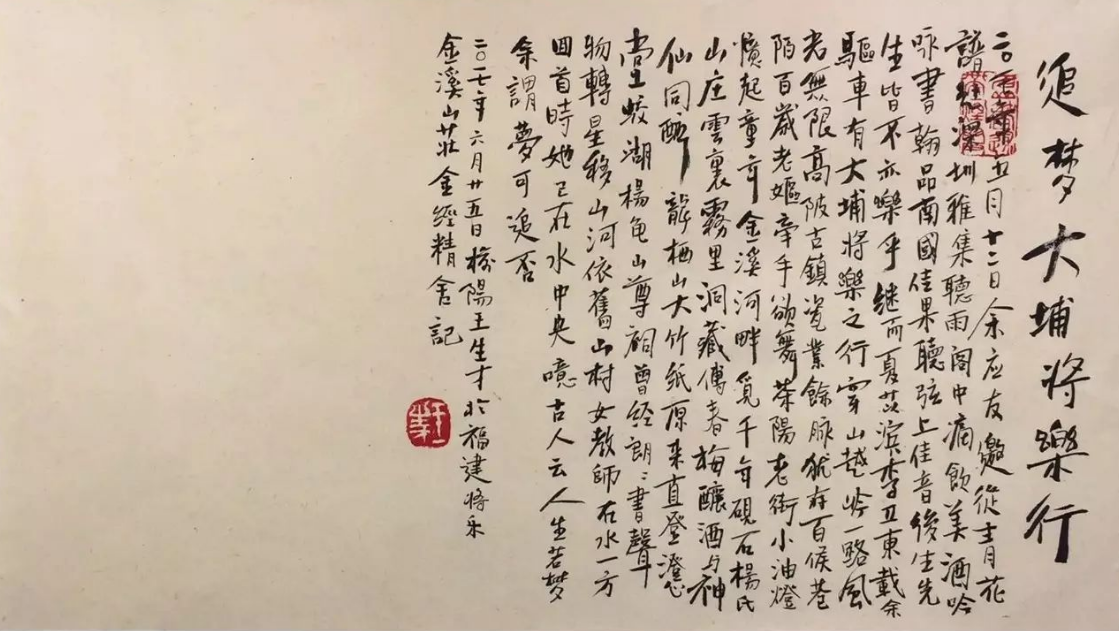 追梦大埔將樂行
二〇一七年五月十二日余应友邀從青花
譜到深圳雅集聽雨阁中痛飲美酒吟
咏書翰品南國佳果聽弦上佳音後生先
生皆不亦樂乎继而夏茂滨李卫東載余
驅車有大埔將樂之行穿山越岭一路風
光無限高陂古鎮瓷業餘脉犹存百侯巷
陌百歲老嫗牽手欲舞茶陽老街小油燈
憶起童年金溪河畔覓千年硯石楊氏
山庄雲裏霧里洞藏傅春梅釀酒与神
仙同醉龍栖山大竹纸原来直登澄心
堂上蛟湖楊龟山尊祠曾经朗〻書聲
物轉星移山河依舊山村女教師在水一方
回首時她已在水中央噫古人云人生若梦
余謂夢可追否
二〇一七年六月廿五日榕陽王生才於福建將乐
金溪山莊金經精舍記